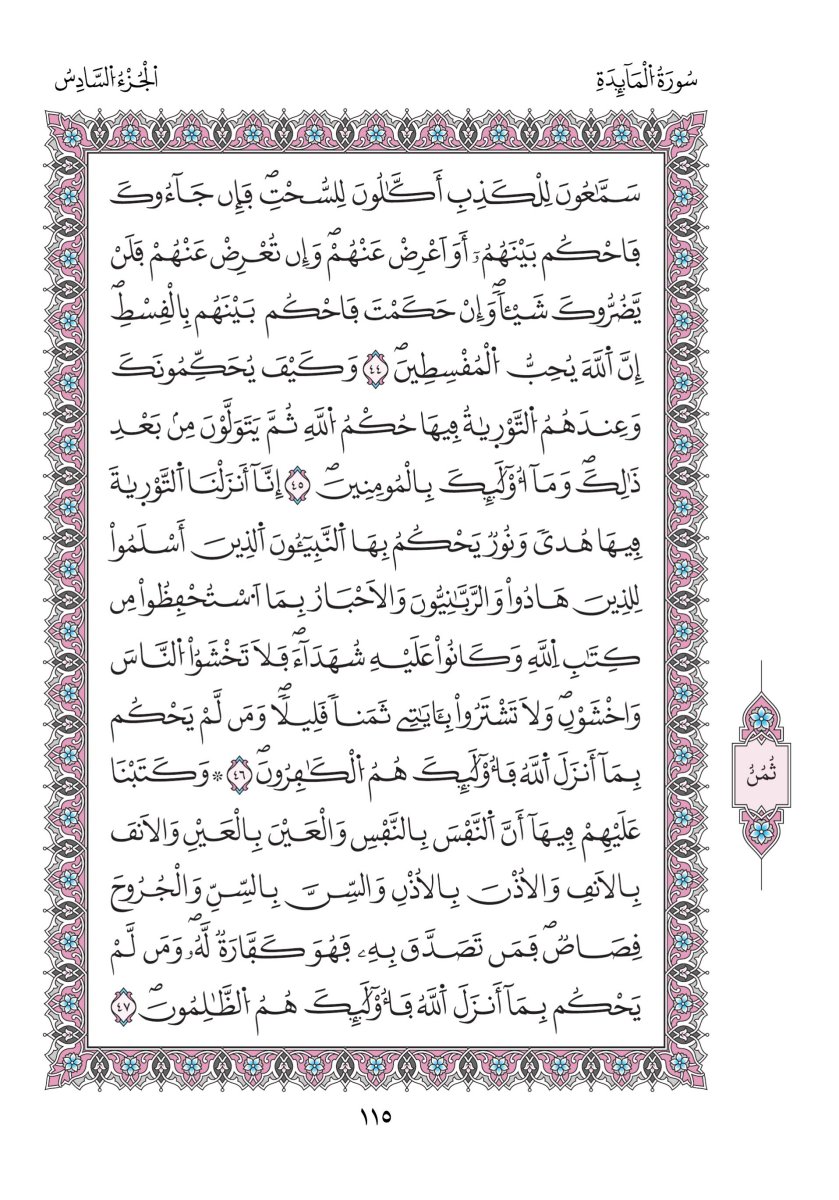 سُورَةُ اُ۬لْمَآئِدَةِ
اَ۬لْجُزْءُ اُ۬لسَّادِسُ
سَمَّٰعُونَ لِلْكَذِبِ أَكَّٰلُونَ لِلسُّحْتِۖ فَإِن جَآءُوكَ
فَاحْكُم بَيْنَهُمُۥٓ أَوَ اَعْرِضْ عَنْهُمْۖ وَإِن تُعْرِضْ عَنْهُمْ فَلَنْ
يَّضُرُّوكَ شَيْـٔاٗۖ وَإِنْ حَكَمْتَ فَاحْكُم بَيْنَهُم بِالْقِسْطِۖ
إِنَّ اَ۬للَّهَ يُحِبُّ اُ۬لْمُقْسِطِينَۖ ٤٤ وَكَيْفَ يُحَكِّمُونَكَ
وَعِندَهُمُ اُ۬لتَّوْر۪يٰةُ فِيهَا حُكْمُ اُ۬للَّهِ ثُمَّ يَتَوَلَّوْنَ مِنۢ بَعْدِ
ذَٰلِكَۖ وَمَآ أُوْلَٰٓئِكَ بِالْمُومِنِينَۖ ٤٥ إِنَّآ أَنزَلْنَا اَ۬لتَّوْر۪يٰةَ
فِيهَا هُدىٗ وَنُورٞ يَحْكُمُ بِهَا اَ۬لنَّبِيٓـُٔونَ اَ۬لذِينَ أَسْلَمُواْ
لِلذِينَ هَادُواْ وَالرَّبَّٰنِيُّونَ وَالَاحْبَارُ بِمَا اَ۟سْتُحْفِظُواْ مِن
كِتَٰبِ اِ۬للَّهِ وَكَانُواْ عَلَيْهِ شُهَدَآءَۖ فَلَا تَخْشَوُاْ اُ۬لنَّاسَ
وَاخْشَوْنِۖ وَلَا تَشْتَرُواْ بِـَٔايَٰتِے ثَمَناٗ قَلِيلاٗۖ وَمَن لَّمْ يَحْكُم
بِمَآ أَنزَلَ اَ۬للَّهُ فَأُوْلَٰٓئِكَ هُمُ اُ۬لْكَٰفِرُونَۖ ٤٦ * وَكَتَبْنَا
عَلَيْهِمْ فِيهَآ أَنَّ اَ۬لنَّفْسَ بِالنَّفْسِ وَالْعَيْنَ بِالْعَيْنِ وَالَانفَ
بِالَانفِ وَالُاذْنَ بِالُاذْنِ وَالسِّنَّ بِالسِّنِّ وَالْجُرُوحَ
قِصَاصٞۖ فَمَن تَصَدَّقَ بِهِۦ فَهُوَ كَفَّارَةٞ لَّهُۥۖ وَمَن لَّمْ
يَحْكُم بِمَآ أَنزَلَ اَ۬للَّهُ فَأُوْلَٰٓئِكَ هُمُ اُ۬لظَّٰلِمُونَۖ ٤٧
ثُمُنٌ
١١٥